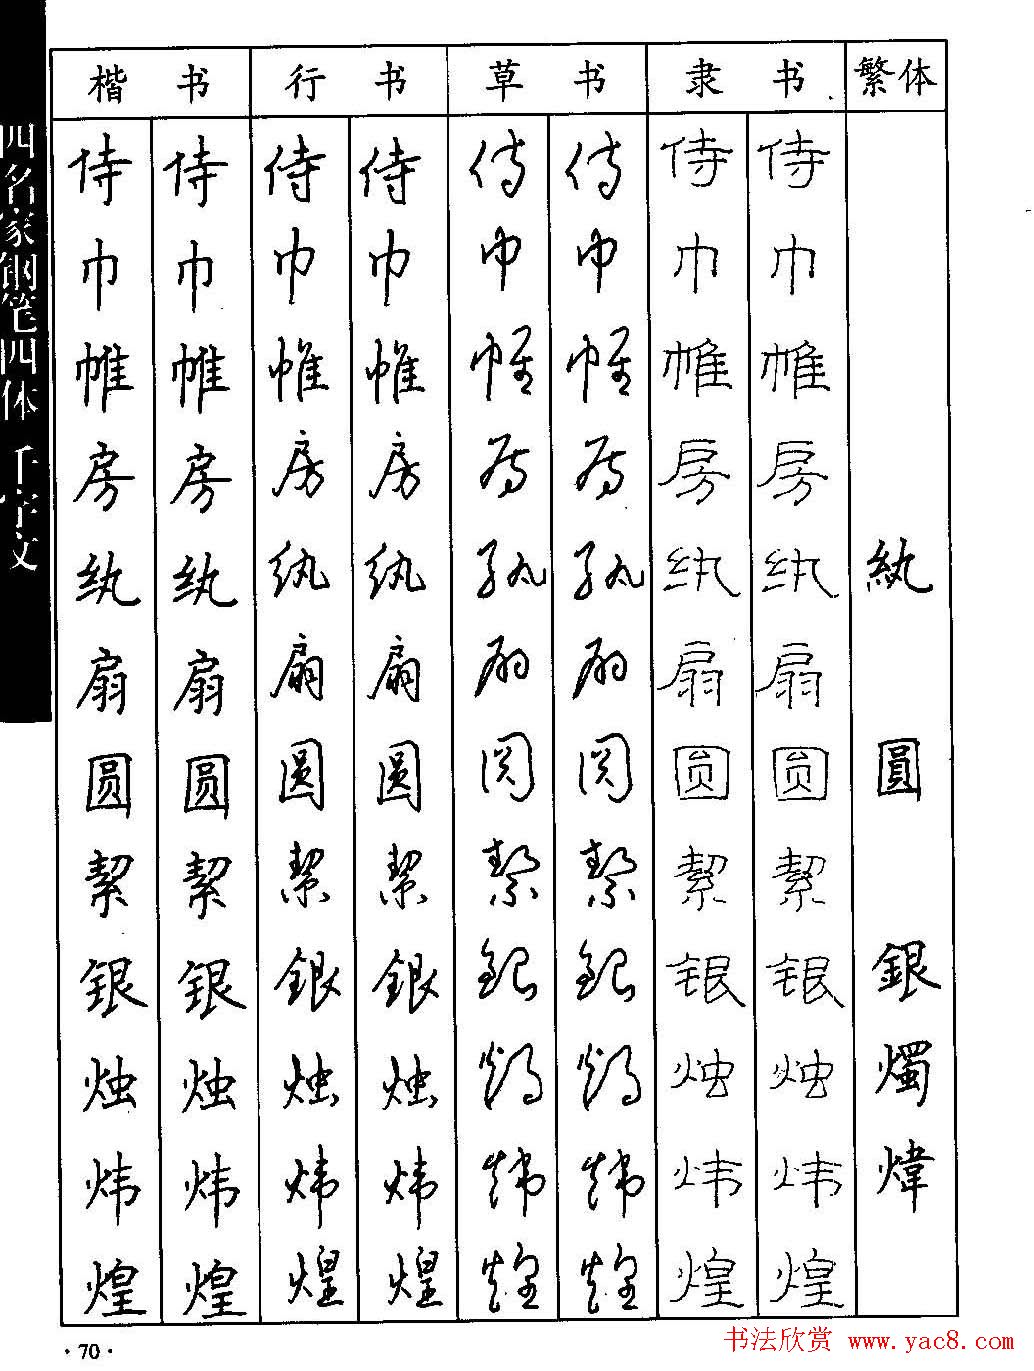 四名家钢笔四体 千字文
楷书 行书 草书 隶书 繁体
侍 侍 侍 侍 侍 侍 侍 侍
巾 巾 巾 巾 巾 巾 巾 巾
帷 帷 帷 帷 帷 帷 帷 帷
房 房 房 房 房 房 房 房
纨 纨 纨 纨 纨 纨 纨 纨 紈
扇 扇 扇 扇 扇 扇 扇 扇
圆 圆 圆 圆 圆 圆 圆 圆 圓
絜 絜 絜 絜 絜 絜 絜 絜
银 银 银 银 银 银 银 银 銀
烛 烛 烛 烛 烛 烛 烛 烛 燭
炜 炜 炜 炜 炜 炜 炜 炜 煒
煌 煌 煌 煌 煌 煌 煌 煌
·70·
书法欣赏 www.yac8.com